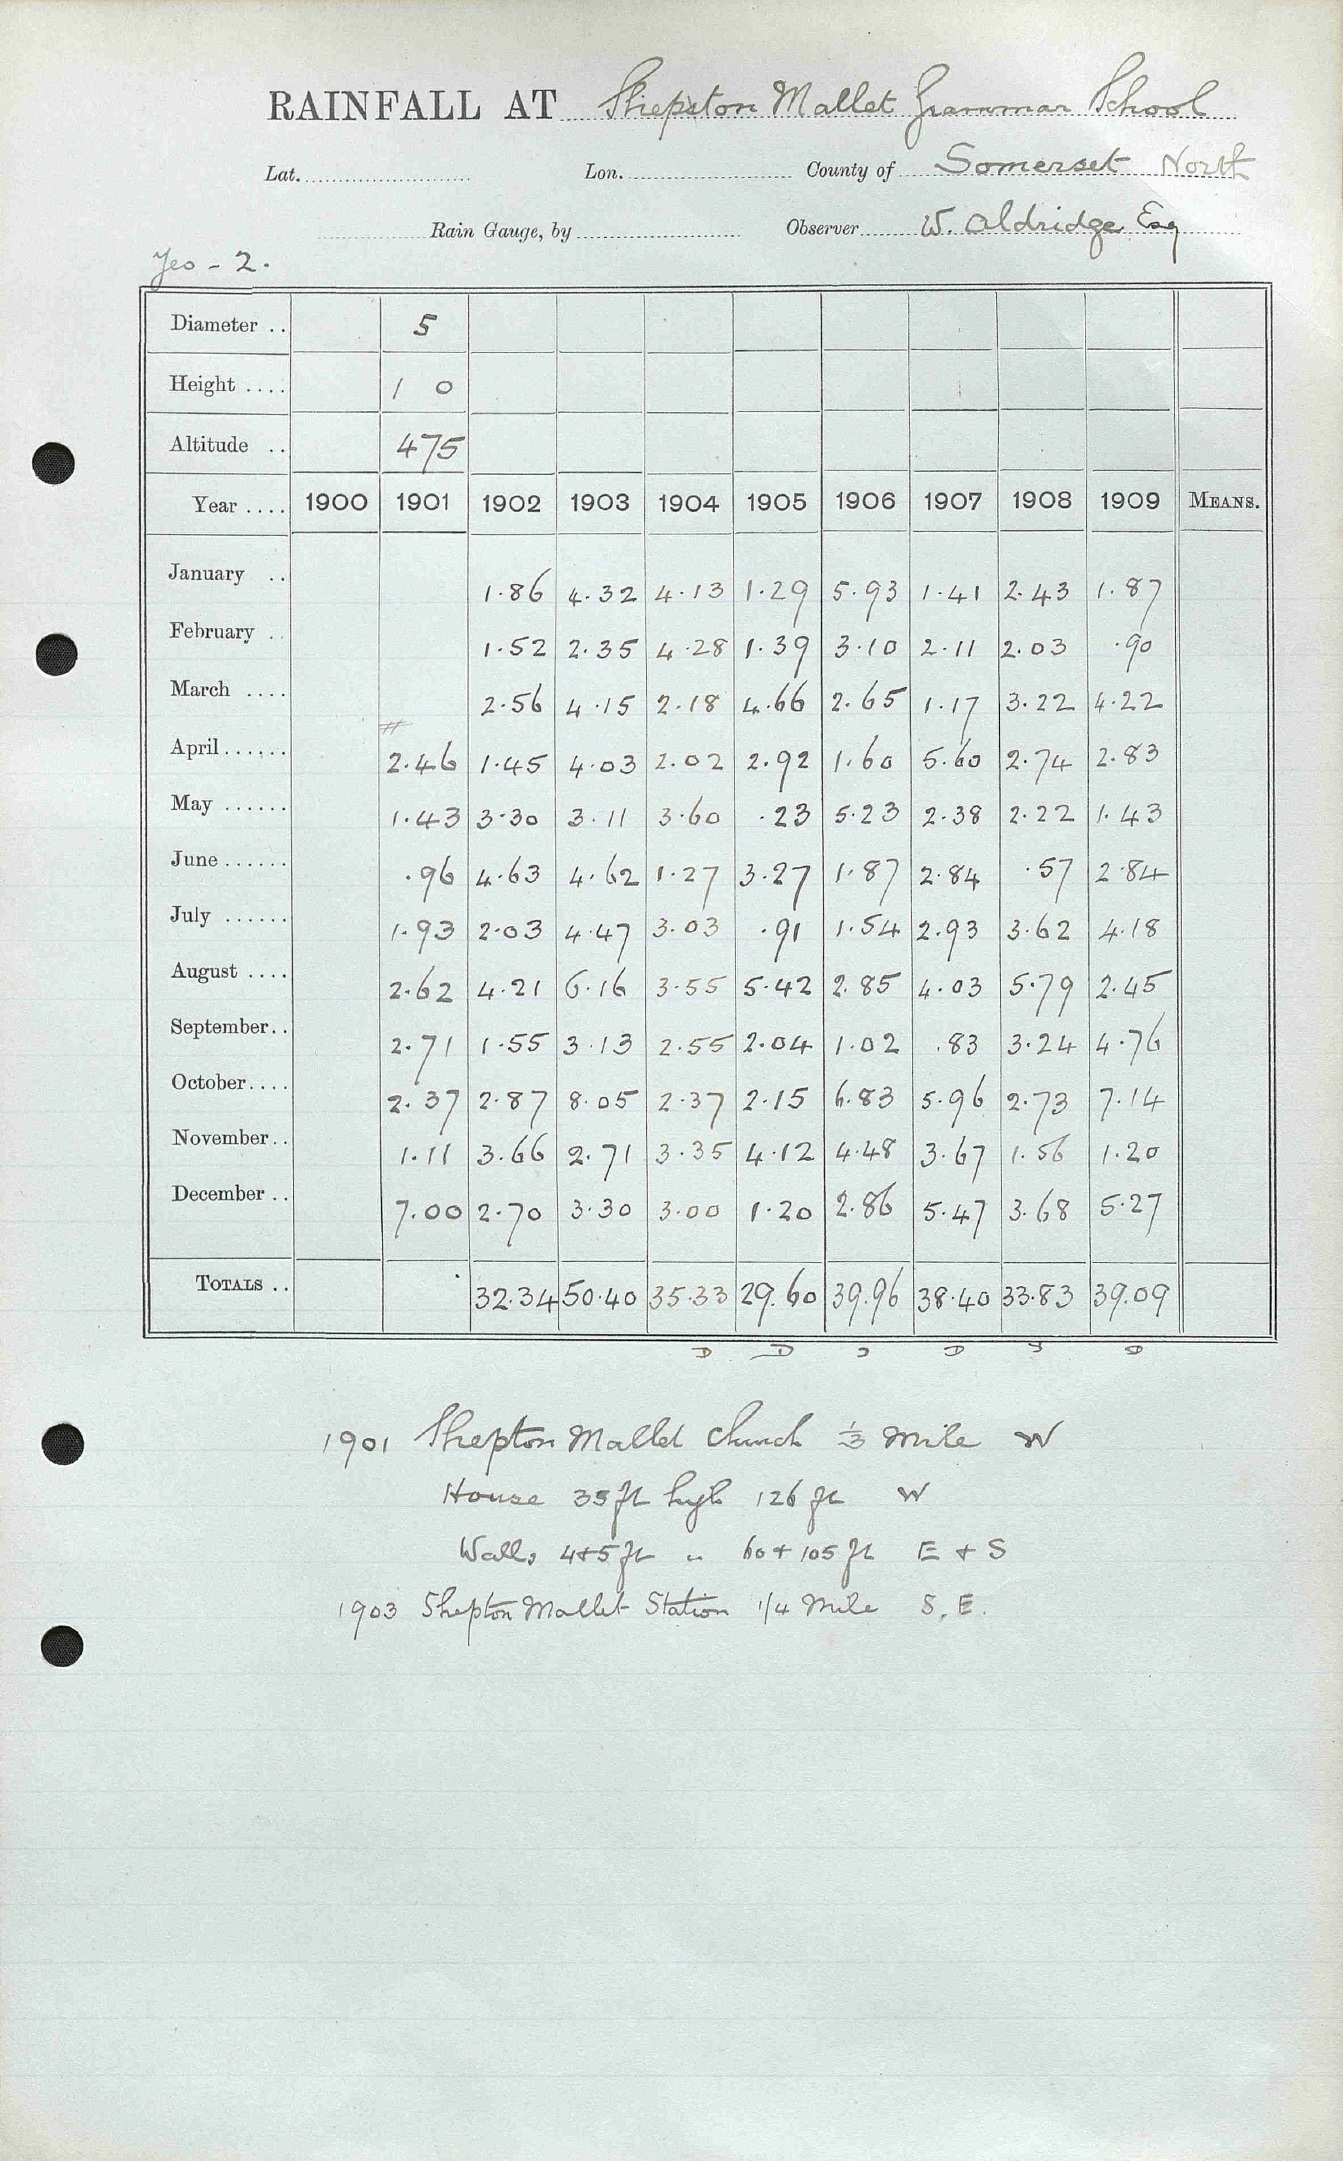 RAINFALL AT Shepston Mallet Grammar School
Lat. Lon. County of Somerset North
Rain Gauge, by Observer W. Aldridge Esq
Yeo - 2.
Diameter .. 5
Height .... 1 0
Altitude .. 475
Year .... 1900 1901 1902 1903 1904 1905 1906 1907 1908 1909 MEANS.
January .. 1.86 4.32 4.13 1.29 5.93 1.41 2.43 1.87
February .. 1.52 2.35 4.28 1.39 3.10 2.11 2.03 .90
March .... 2.56 4.15 2.18 4.66 2.65 1.17 3.22 4.22
April ...... 2.46 1.45 4.03 2.02 2.92 1.60 5.60 2.74 2.83
May ...... 1.43 3.30 3.11 3.60 .23 5.23 2.38 2.22 1.43
June ...... .96 4.63 4.62 1.27 3.27 1.87 2.84 .57 2.84
July ...... 1.93 2.03 4.47 3.03 .91 1.54 2.93 3.62 4.18
August .... 2.62 4.21 6.16 3.55 5.42 2.85 4.03 5.79 2.45
September .. 2.71 1.55 3.13 2.55 2.04 1.02 .83 3.24 4.76
October .... 2.37 2.87 8.05 2.37 2.15 6.83 5.96 2.73 7.14
November .. 1.11 3.66 2.71 3.35 4.12 4.48 3.67 1.56 1.20
December .. 7.00 2.70 3.30 3.00 1.20 2.86 5.47 3.68 5.27
TOTALS .. 32.34 50.40 35.33 29.60 39.96 38.40 33.83 39.09
1901 Shepton Mallet Church 1/3 Mile W
House 35 ft high 126 ft W
Walls 4+5 ft " 60 + 105 ft E + S
1903 Shepton Mallet Station 1/4 Mile S.E.